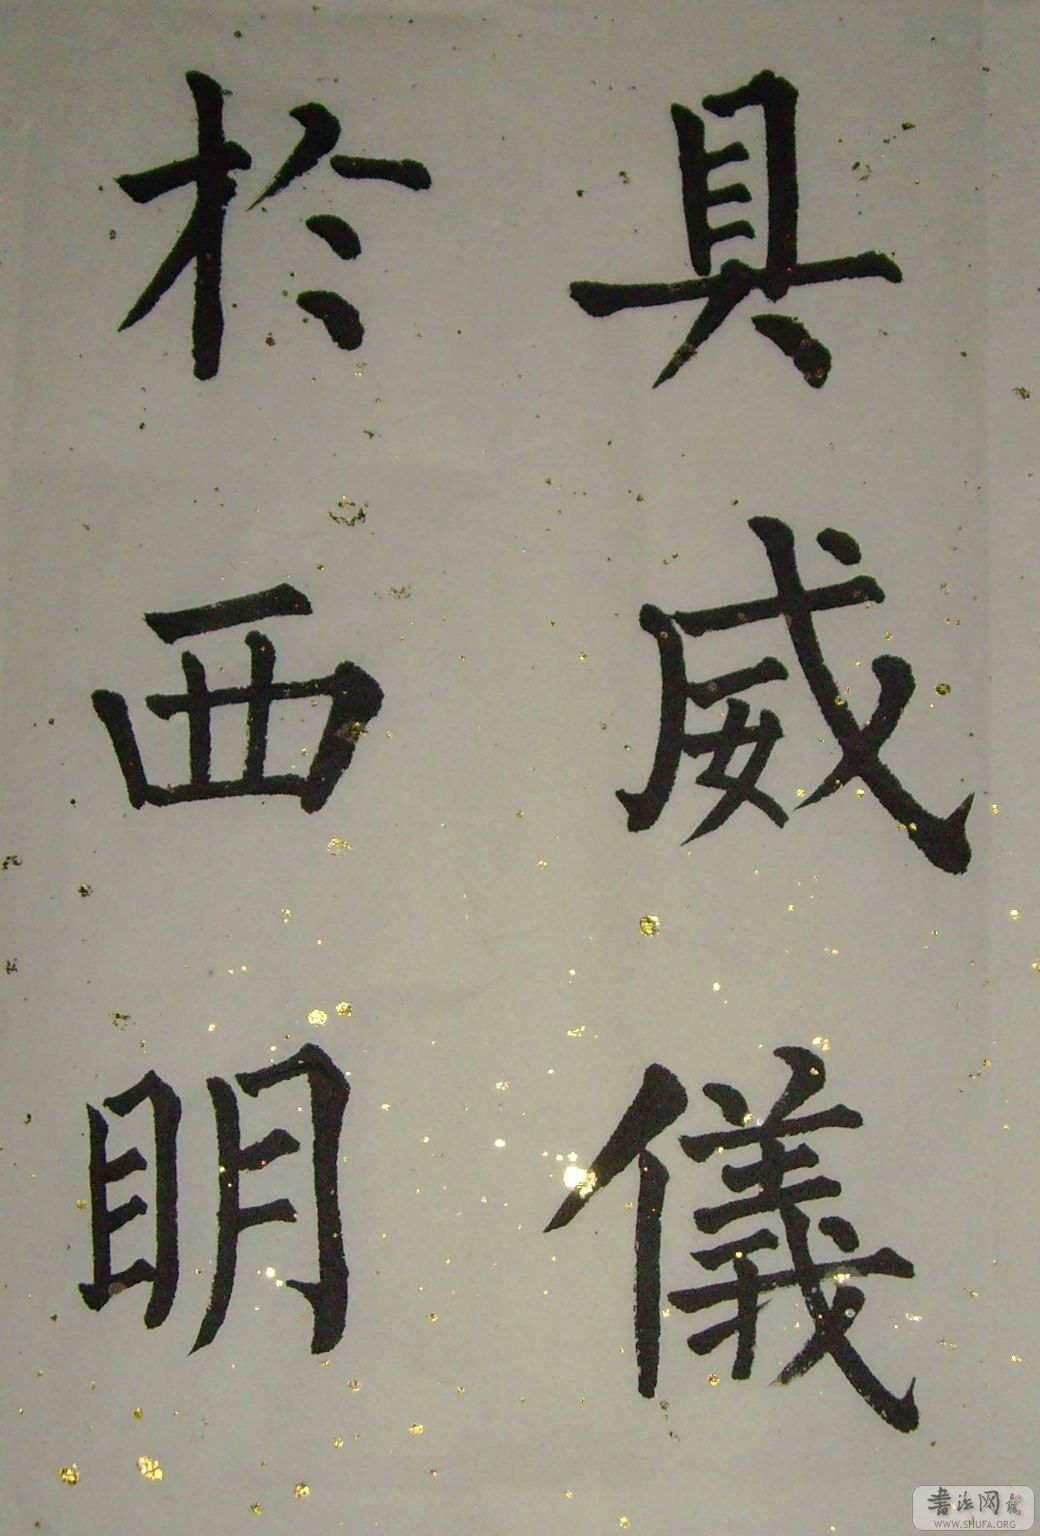 具威儀
於西明
書法网
WWW.SHUFA.ORG